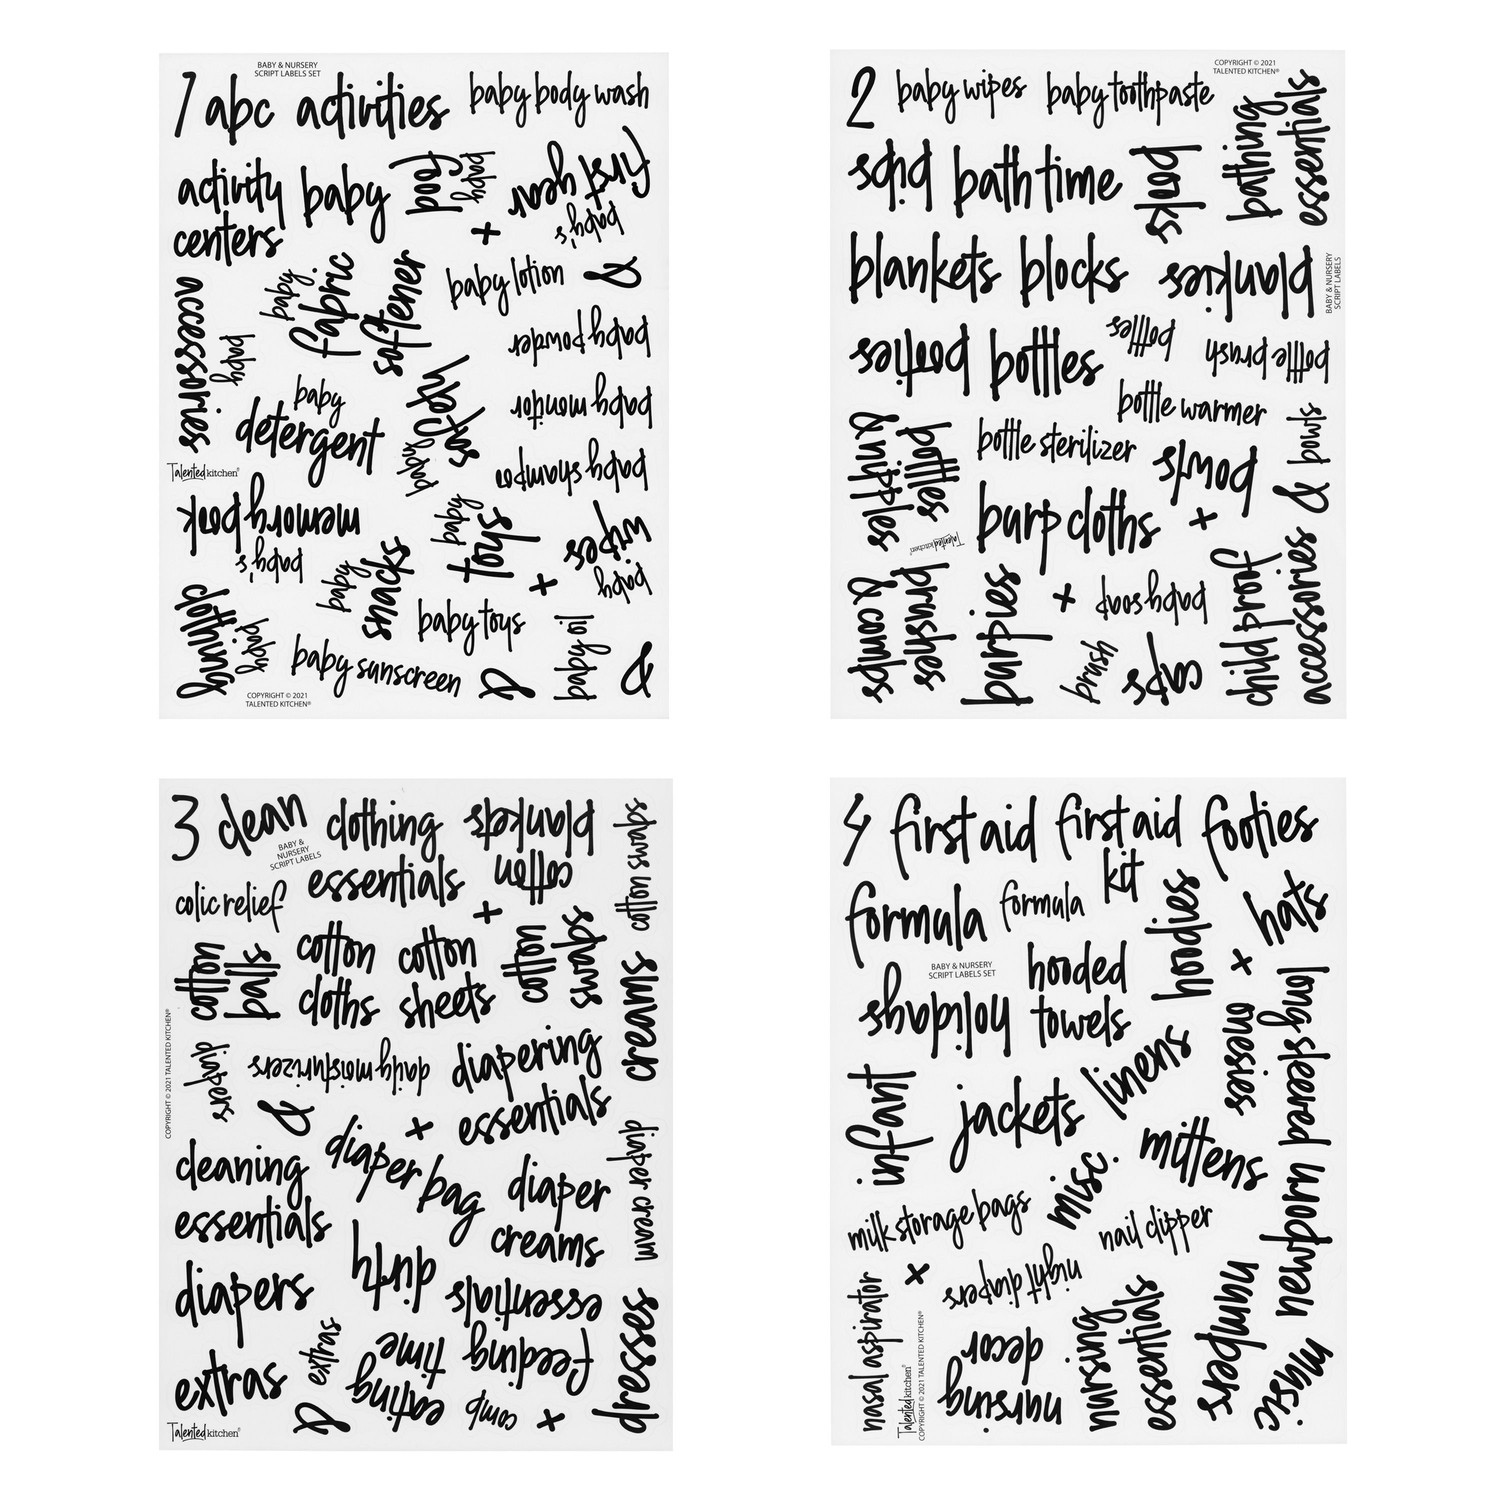 BABY & NURSERY
SCRIPT LABELS SET
1 abc activities baby body wash
activity
centers
baby
baby
food
baby's
first year
+
accessories
baby
baby
fabric
softener
baby lotion
&
baby powder
baby
detergent
baby
safety
baby monitor
baby shampoo
Talented kitchen®
baby's
memory book
baby
toys
baby
wipes
+
baby
clothing
baby
snacks
baby toys
baby oil
baby sunscreen
&
&
COPYRIGHT © 2021
TALENTED KITCHEN®
COPYRIGHT © 2021
TALENTED KITCHEN®
2 baby wipes baby toothpaste
bathing
essentials
bibs
bath time
books
blankets
blocks
blankies
BABY & NURSERY
SCRIPT LABELS
booties
bottles
bottles
bottle brush
bottle warmer
bottles
& nipples
bottle sterilizer
bowls
bowls
&
+
burp cloths
Talented kitchen®
brushes
& combs
burpies
+
baby soap
brush
caps
child proof
accessories
3 clean
BABY &
NURSERY
SCRIPT LABELS
clothing
essentials
cotton
blankets
cotton swabs
colic relief
+
cotton
balls
cotton
cloths
cotton
sheets
cotton
swabs
creams
COPYRIGHT © 2021 TALENTED KITCHEN®
diapers
daily moisturizers
diapering
essentials
&
+
diaper bag
diaper cream
cleaning
essentials
diaper
creams
diapers
dirty
feeding
essentials
dresses
extras
extras
eating
time
comb
&
+
Talented kitchen®
4 first aid
first aid
kit
footies
formula
formula
hoodies
hats
+
BABY & NURSERY
SCRIPT LABELS SET
hooded
towels
holidays
onesies
long sleeved
infant
jackets
linens
mittens
misc.
newborn
milk storage bags
nail clipper
nasal aspirator
+
night diapers
nursing
decor
nursing
essentials
numbers
music
Talented kitchen®
COPYRIGHT © 2021 TALENTED KITCHEN®